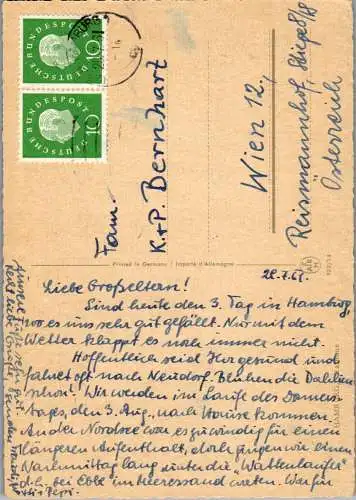 DEUTSCHE BUNDESPOST
10
DEUTSCHE BUNDESPOST
10
Fam.
K+P. Bernhart
Wien 12,
Reismannhof,
Österreich
Printed in Germany / Importé d'Allemagne
28.7.61.
Liebe Großeltern!
Sind heute den 3. Tag in Hamburg,
wo es uns sehr gut gefällt. Nur mit dem
Wetter klappt es noch immer nicht.
Hoffentlich seid Ihr gesund und
fahret oft nach Neudorf. Blühen die Dahlien
schon? Wir werden im Laufe des Donners-
tages, den 3. Aug., nach Hause kommen.
An der Nordsee war es zu windig für einen
längeren Aufenthalt, doch gingen wir einen
Nachmittag lang unter die "Wattenläufer"
d.h. bei Ebbe im Meeressand waten. War für